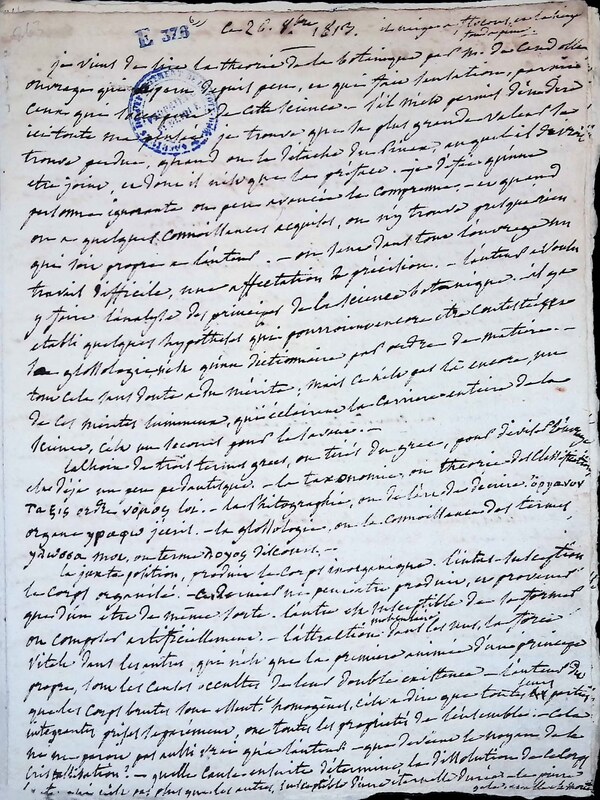 E 378 6)
ce 26. 8.bre 1813.
je viens de lire la théorie de la botanique par M. de Candolle
ouvrage qui a paru depuis peu, et qui fait sensation, parmi
ceux que de cette science - s'il m'est permis d'en dire
ici toute ma je trouve que sa plus grande valeur se
trouve perdue, quand on le détache du auquel il devroit
être joint, et dont il n'est que la préface. - je défie qu'une
personne ignorante on peu avancée le comprenne. - et quand
on a quelques connoissances acquises, on n'y trouve presque rien
qui soit propre à l'auteur. - on sent dans tout l'ouvrage un
travail difficile, une affectation de précision. - l'auteur a voulu
y faire l'analyse des principes de la science botanique. et y a
établi quelques hypothèses qui pourroient encore être contestées
la glossologie n'est qu'un dictionnaire par ordre de matière. -
tout cela sans doute a du mérite, mais ce n'est pas là encore, un
de ces mérites lumineux, qui éclairent la carrière entière de la
science, c'est un secours pour le savoir. -
le choix de trois termes grecs, ou tirés du grec, pour diviser l'ouvrage
est déjà un peu pédantesque. - la taxonomie, ou théorie des classifications
ταξις ordre νόμος loi. - la phitographie, ou de l'art de décrire. ὄργανον
organe γραφω j'écris. - la glossologie, ou la connoissance des termes
γλωσσα mot, ou terme λογος discours. -
la juxtaposition, produit le corps inorganique. l'intus-susception
le corps organisé. - ce dernier ne peut être produit, et provenir
que d'un être de même sorte. l'autre est susceptible de se former
ou composer artificiellement. - l'attraction moléculaire dans les uns, la force
vitale dans les autres, qui n'est que la première animée d'un principe
propre, sont les causes occultes de leur double existence - l'auteur dit
que les corps bruts sont essentt homogènes, c'est à dire que toutes leurs parties
intégrantes prises séparement, ont toutes les propriétés de l'ensemble. - Cela
ne me paroît pas aussi vrai qu'à l'auteur - que devient le noyau de la
cristallisation? - quelle cause ensuite détermine la dissolution de ce corps
qui n'est pas plus que les autres, susceptible d'une éternelle durée - la pierre